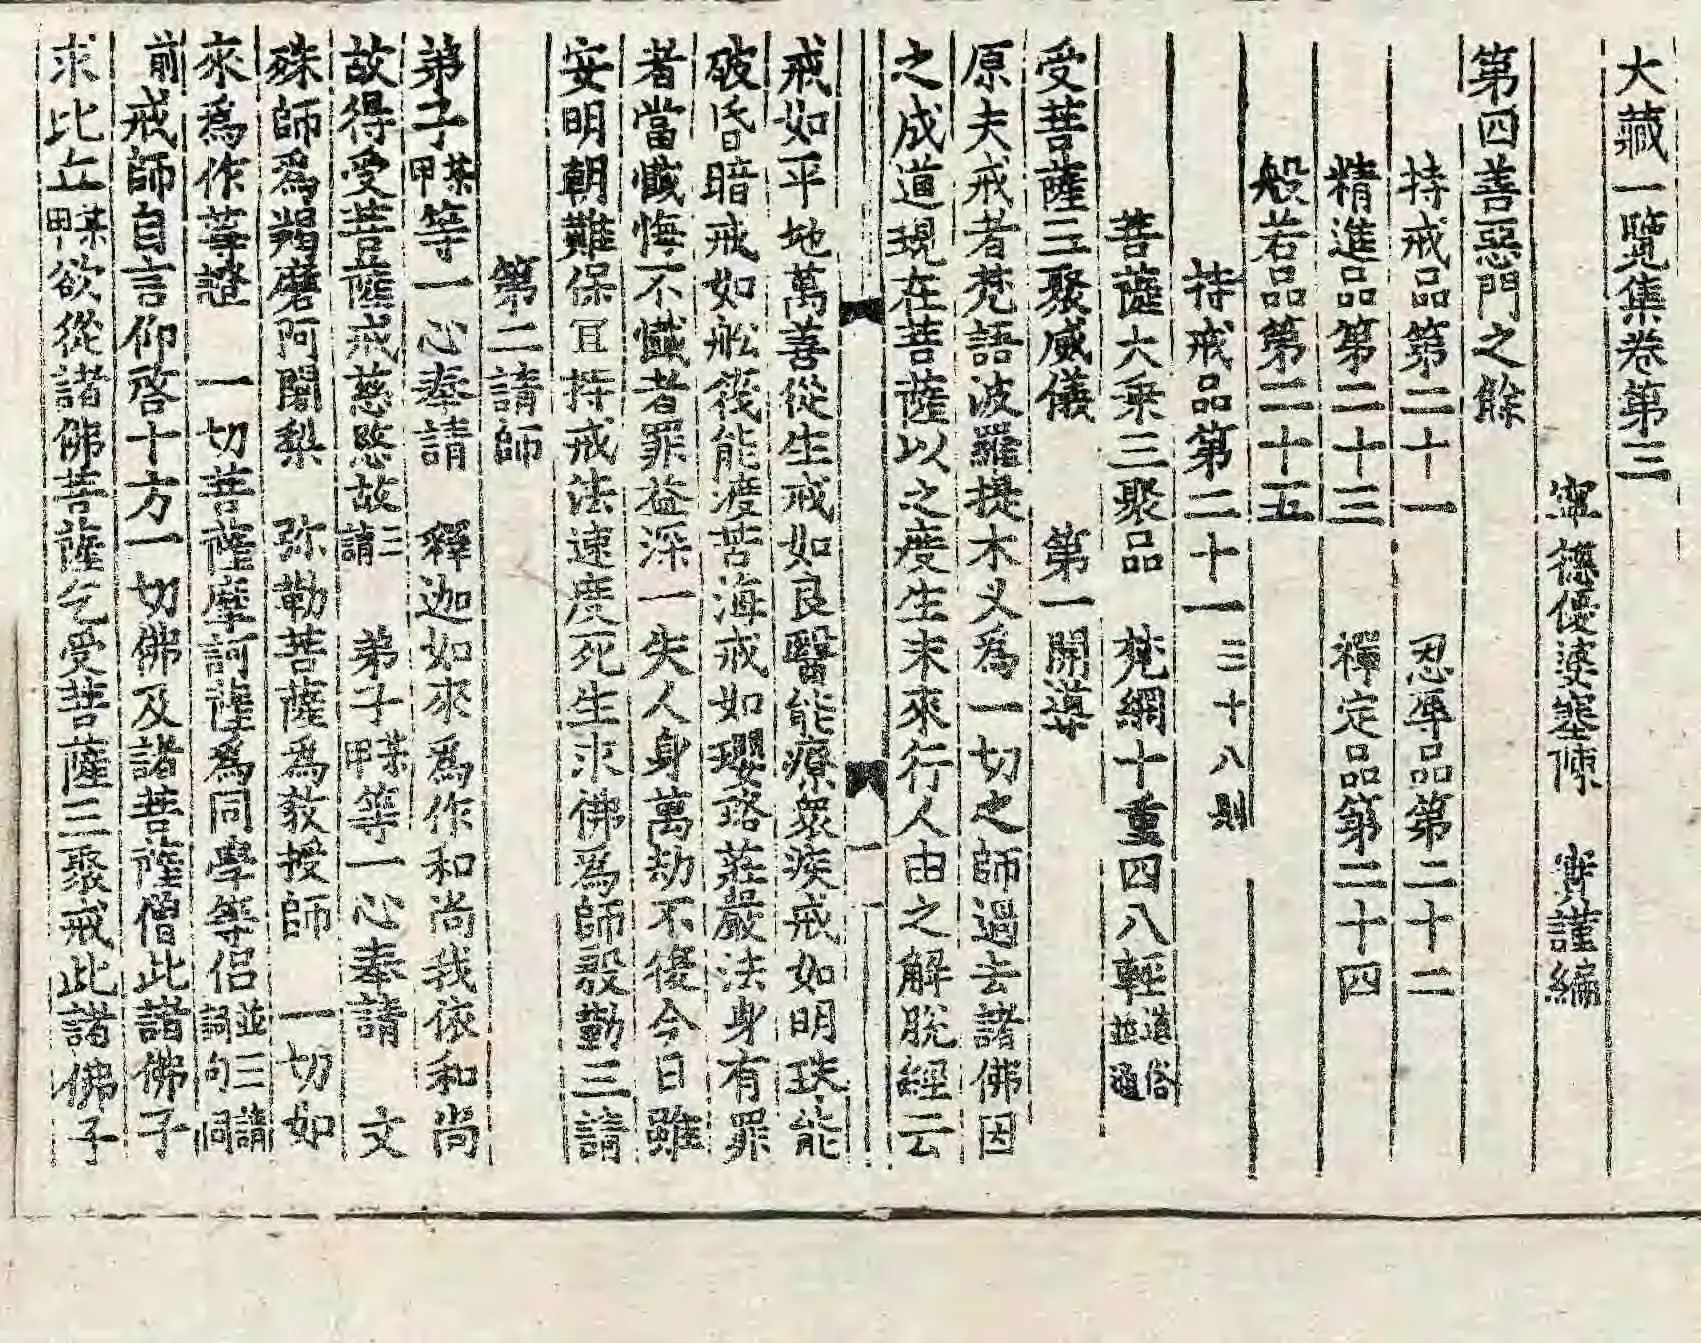 大藏一覽集卷第三
寧德優婆塞陳 實謹編
第四善惡門之餘
持戒品第二十一 忍辱品第二十二
精進品第二十三 禪定品第二十四
般若品第二十五
持戒品第二十一 三十八則
菩薩大乘三聚品 梵網十重四八輕 道俗並通
受菩薩三聚威儀 第一開導
原夫戒者梵語波羅提木叉爲一切之師過去諸佛因
之成道現在菩薩以之度生末來行人由之解脫經云
一
戒如平地萬善從生戒如良醫能療衆疾戒如明珠能
破昏暗戒如舩筏能渡苦海戒如瓔珞莊嚴法身有罪
者當懺悔不懺者罪益深一失人身萬劫不復今日雖
安明朝難保且持戒法速度死生求佛爲師設勤三請
第二請師
弟子某甲等一心奉請 釋迦如來爲作和尚我依和尚
故得受菩薩戒慈愍故三請 弟子某甲等一心奉請 文
殊師爲羯磨阿闍梨 弥勒菩薩爲敎授師 一切如
來爲作等證 一切菩薩摩訶薩爲同學等侣並三請詞句同
前戒師自言仰啓十方一切佛及諸菩薩僧此諸佛子
求比丘某甲欲從諸佛菩薩乞受菩薩三聚戒此諸佛子